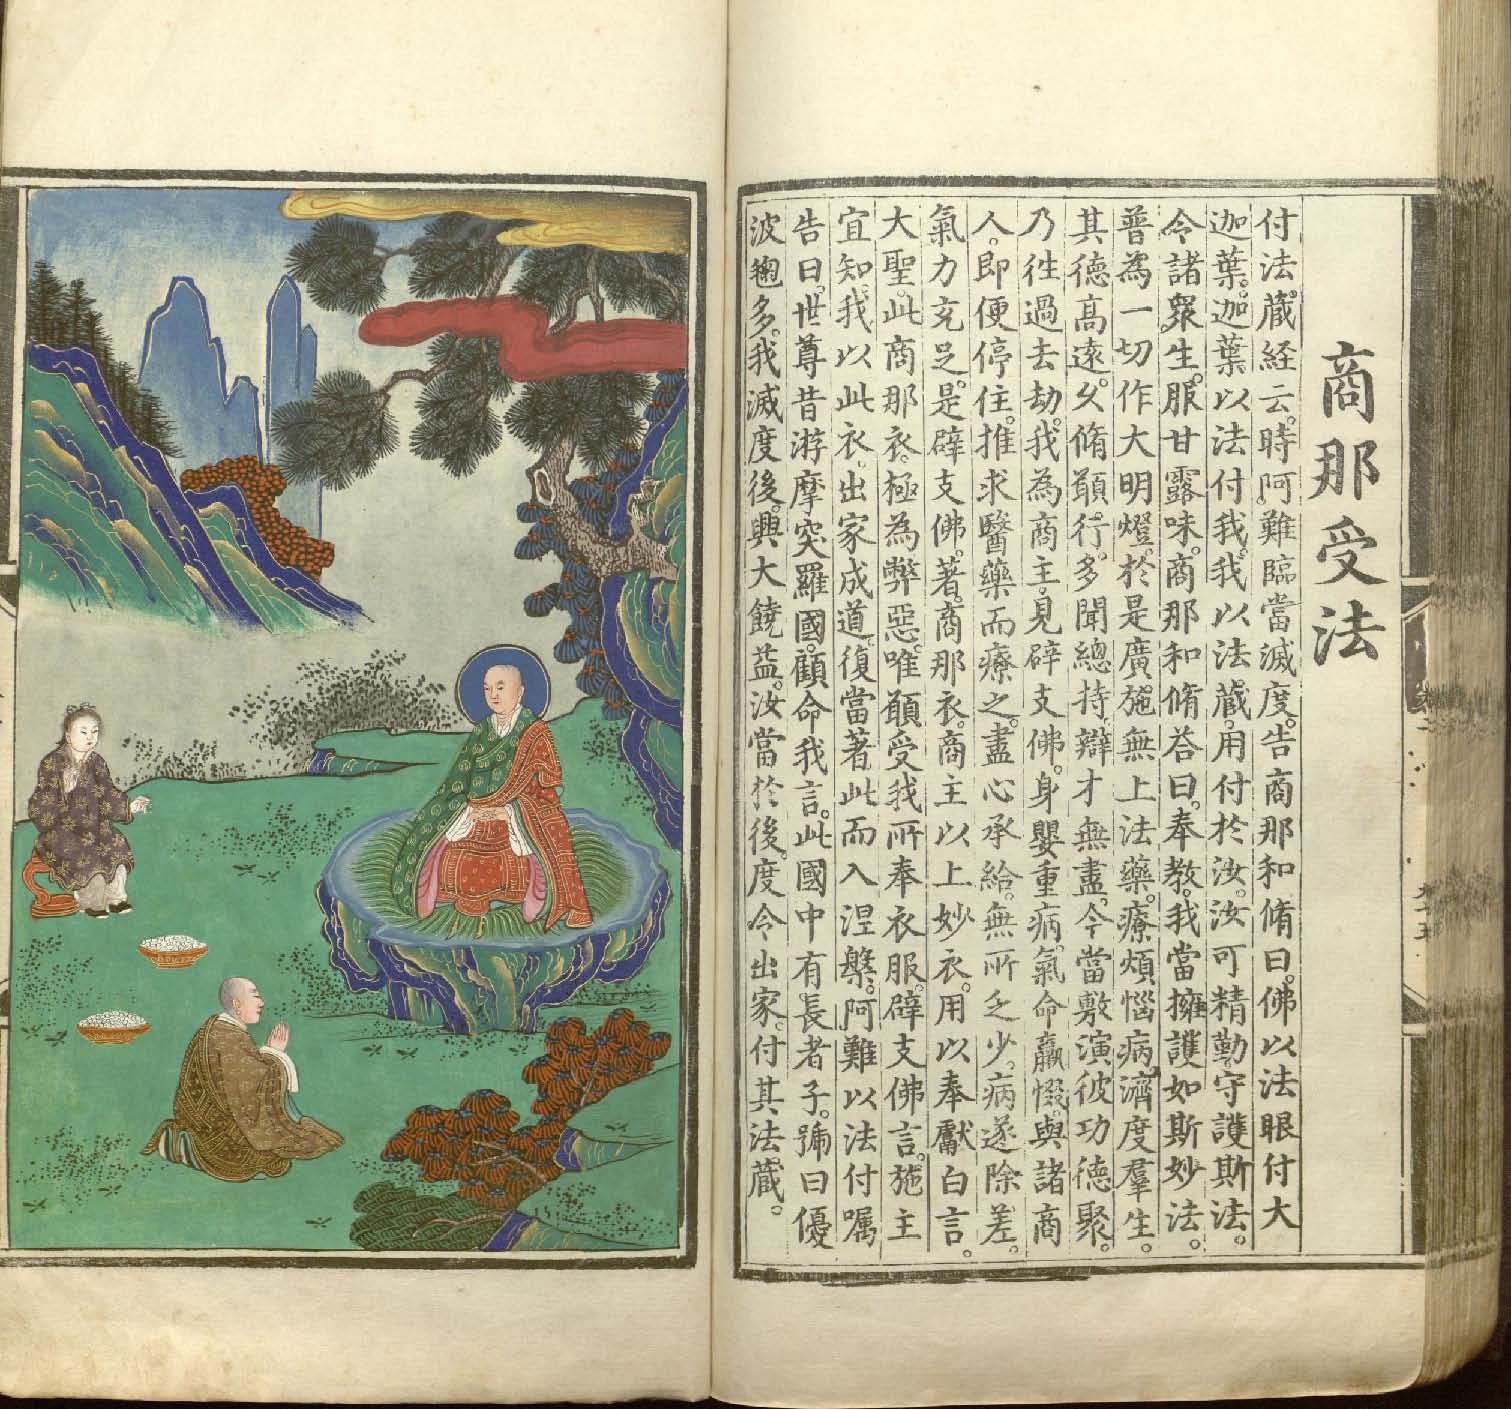 商那受法
付法藏経云。時阿難臨當滅度。告商那和脩曰。佛以法眼付大
迦葉。迦葉以法付我。我以法藏。用付於汝。汝可精勤。守護斯法。
令諸眾生。服甘露味。商那和脩答曰。奉教。我當擁護如斯妙法。
普為一切作大明燈。於是廣施無上法藥。療煩惱病。濟度羣生。
其德高遠。久脩願行。多聞總持。辯才無盡。今當敷演彼功德聚。
乃徃過去劫。我為商主。見辟支佛。身嬰重病。氣命羸惙。與諸商
人。即便停住。推求醫藥而療之。盡心承給。無所乏少。病遂除差。
氣力充足。是辟支佛。著商那衣。商主以上妙衣。用以奉獻白言。
大聖。此商那衣。極為弊惡。唯願受我所奉衣服。辟支佛言。施主
宜知。我以此衣。出家成道。復當著此而入涅槃。阿難以法付嘱
告曰。世尊昔游摩突羅國。顧命我言。此國中有長者子。號曰優
波毱多。我滅度後。興大饒益。汝當於後。度令出家。付其法藏。